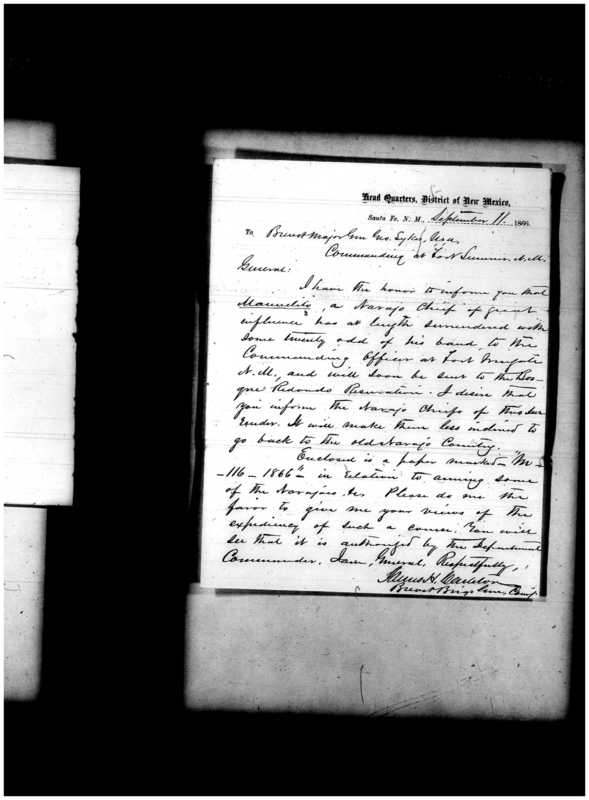 Head Quarters, District of New Mexico,
Santa Fe, N. M., September 11. 1866
To Brevet Major Gen Geo. Sykes, USA.
Commanding at Fort Sumner, N.M.
General:
I have the honor to inform you that
Manuelito, a Navajo Chief of great
influence has at length surrendered with
some twenty odd of his band, to the
Commanding Officer at Fort Wingate
N.M., and will soon be sent to the Bos-
que Redondo Reservation. I desire that
you inform the Navajo Chiefs of this Sur
render. It will make them less inclined to
go back to the old Navajo Country.
Enclosed is a paper marked - "M -
- 116 - 1866" - in relation to arming some
of the Navajoes &c. Please do me the
favor to give me your views of the
expediency of such a course. You will
see that it is authorized by the Department
Commander. I am, General, Respectfully,
James H. Carleton
Brevet Brig. Genl, Comg.